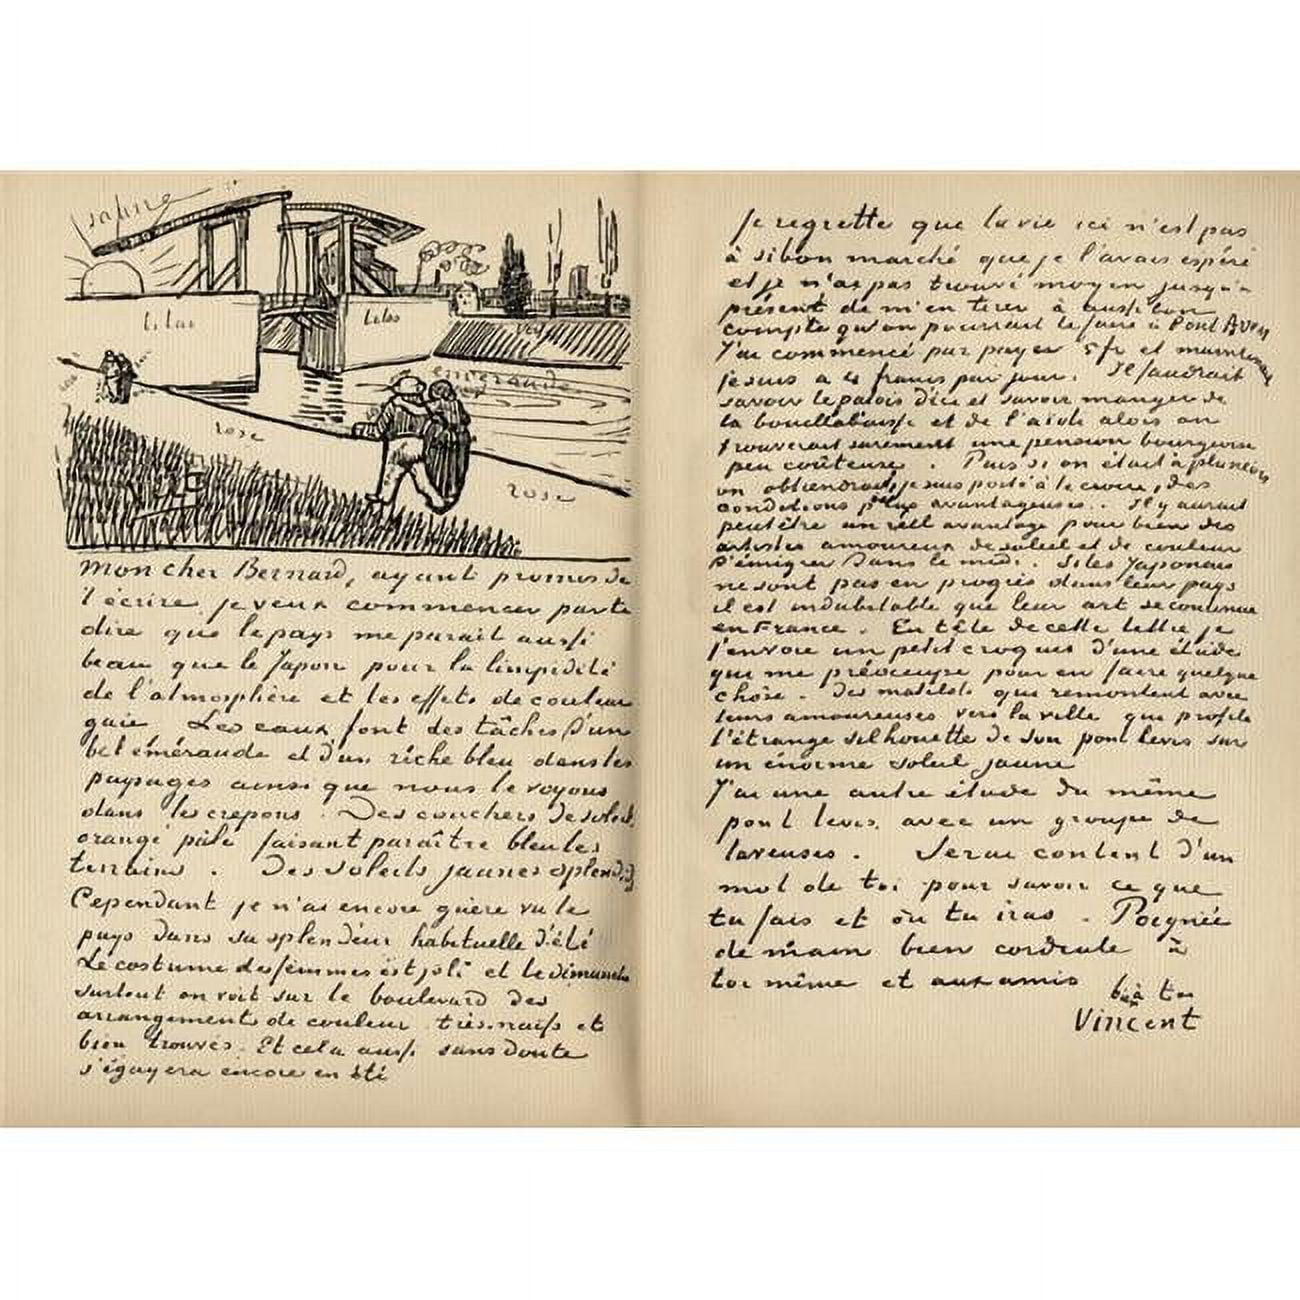 jaune
lilas
lilas
vert
emeraude
rose
rose
rose
Mon cher Bernard, ayant promis de
t'écrire, je veux commencer par te
dire que le pays me parait aussi
beau que le Japon pour la limpidité
de l'atmosphère et les effets de couleur
gaie Les eaux font des tâches d'un
bel éméraude et d'un riche bleu dans les
paysages ainsi que nous le voyons
dans les crepons. Des couchers de soleil
orangé pâle faisant paraître bleu les
terrains. Des soleils jaunes splendides
Cependant je n'ai encore guère vu le
pays dans sa splendeur habituelle d'été
Le costume des femmes est joli et le dimanche
surtout on voit sur le boulevard des
arrangements de couleur très naifs et
bien trouvés. Et cela aussi sans doute
s'égayera encore en été
Je regrette que la vie ici n'est pas
à si bon marché que je l'avais espéré
et je n'ai pas trouvé moyen jusqu'à
présent de m'en tirer à aussi bon
compte qu'on pourrait le faire à Pont Aven
J'ai commencé par payer 5 fr et maintenant
je suis a 4 francs par jour. Il faudrait
savoir le patois d'ici et savoir manger de
la bouillabaisse et de l'aïoli alors on
trouverait surement une pension bourgeoise
peu coûteuse. Puis si on était à plusieurs
on obtiendrait, je suis porté à le croire, des
conditions plus avantageuses. Il y aurait
peutêtre un réell avantage pour bien des
artistes amoureux de soleil et de couleur
d'émigrer dans le midi. Si les Japonais
ne sont pas en progrès dans leur pays
il est indubitable que leur art se continue
en France. En tête de cette lettre je
t'envoie un petit croquis d'une étude
qui me préoccupe pour en faire quelque
chose - Des matelots qui remontent avec
leurs amoureuses vers la ville qui profile
l'étrange silhouette de son pont levis sur
un énorme soleil jaune
J'ai une autre étude du même
pont levis avec un groupe de
laveuses. Serai content d'un
mot de toi pour savoir ce que
tu fais et où tu iras. Poignée
de main bien cordiale à
toi même et aux amis
b. à toi
Vincent